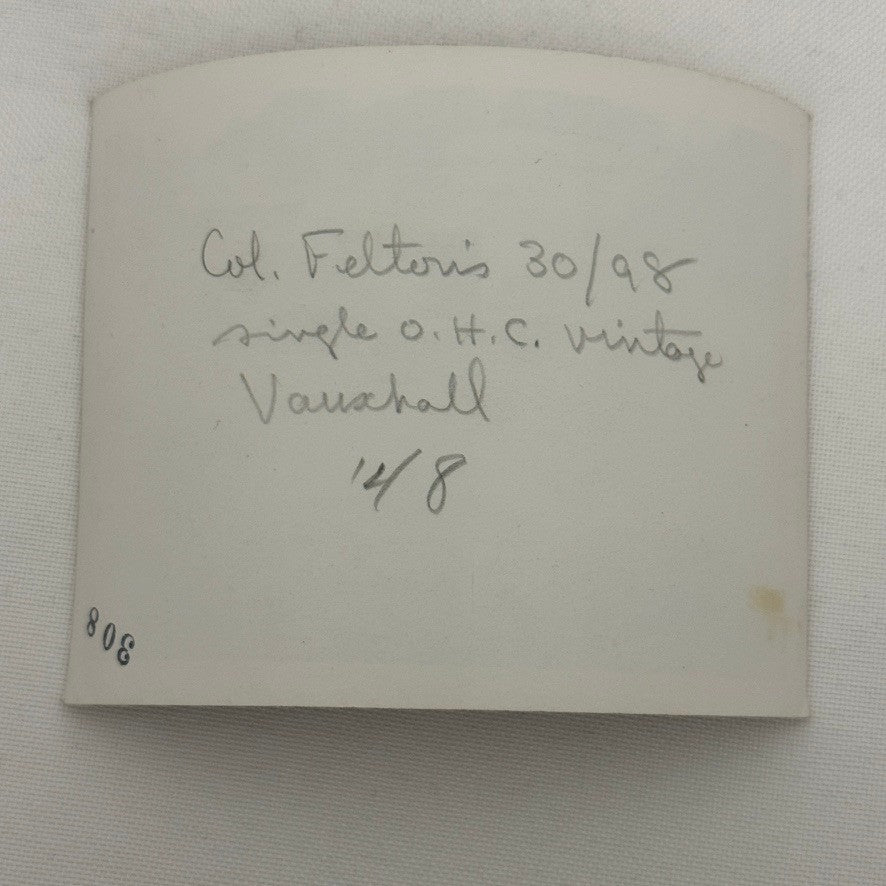 Col. Felton's 30/98
single O.H.C. vintage
Vauxhall
14/8
308